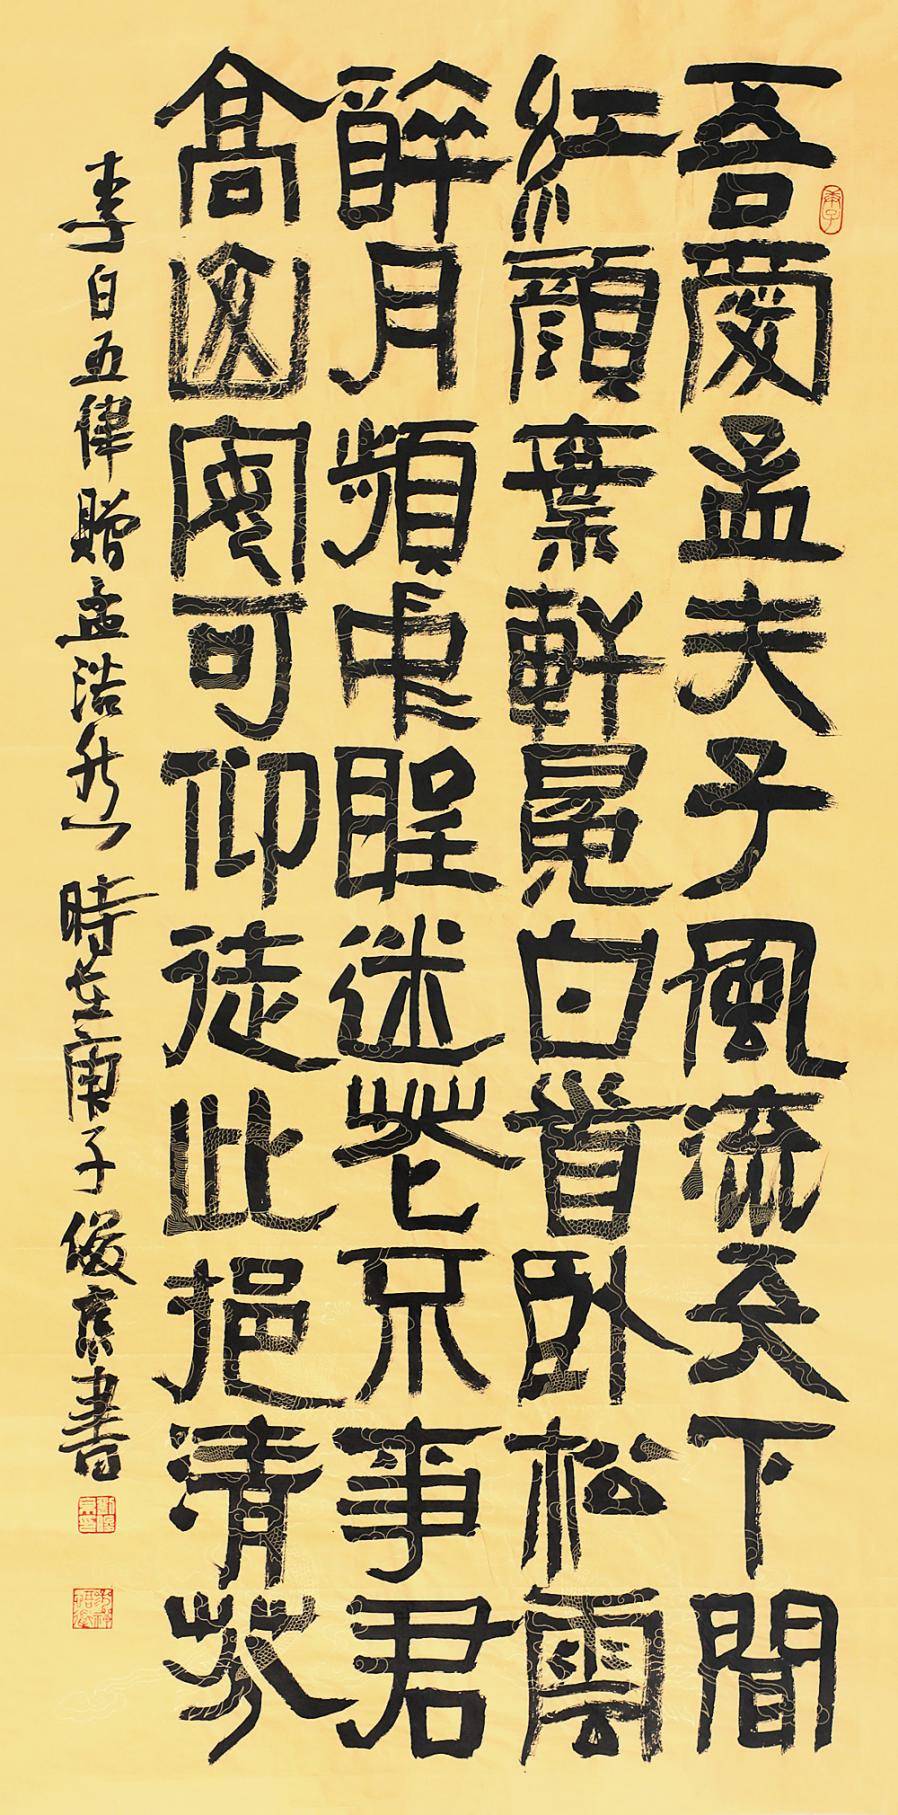 庚子
吾愛孟夫子風流天下聞
紅顏棄軒冕白首臥松雲
醉月頻中聖迷花不事君
高山安可仰徒此挹清芬
李白五律贈孟浩然 時在庚子俊京書